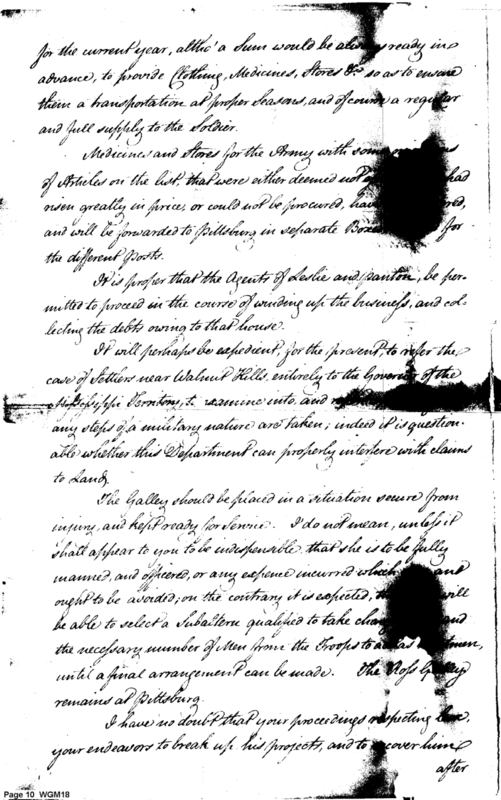 for the current year, altho' a Sum would be always ready in
advance, to provide Clothing, Medicines, Stores &ca so as to ensure
them a transportation at proper Seasons, and of course a regular
and full supply to the Soldier.
Medicines and Stores for the Army with some
of Articles on the list, that were either deemed not had
risen greatly in price, or could not be procured, have
and will be forwarded to Pittsburg in separate Boxes for
the different Posts.
It is proper that the Agents of Leslie and Panton, be per-
mitted to proceed in the course of winding up the business, and col-
lecting the debts owing to that house.
It will perhaps be expedient, for the present, to refer the
case of Settlers near Walnut Hills, entirely to the Governor of the
Mississippi Territory, to examine into and
any steps of a military nature are taken; indeed it is question-
able whether this Department can properly interfere with claims
to Land.
The Galley should be placed in a situation secure from
injury, and kept ready for Service. I do not mean, unless it
shall appear to you to be indispensible, that she is to be fully
manned, and officered, or any expence incurred which
ought to be avoided; on the contrary it is expected, will
be able to select a Subaltern qualified to take charge and
the necessary number of Men from the Troops to act as
until a final arrangement can be made. The Ross Galley
remains at Pittsburg.
I have no doubt that your proceedings respecting
your endeavors to break up his projects, and to recover him
after
Page 10 WGM18